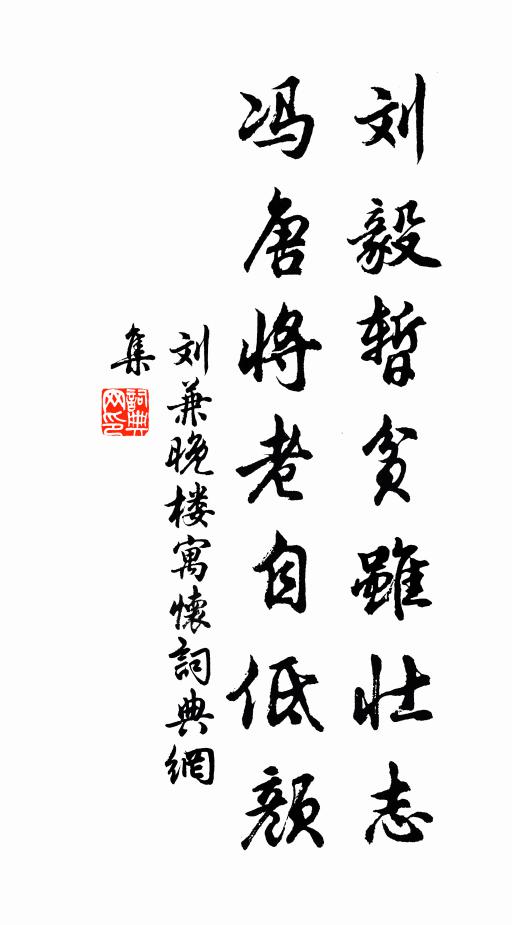 刘毅暂贫虽壮志
冯唐将老自低颜
刘兼晚楼寓怀词典網
集
詞典
网印